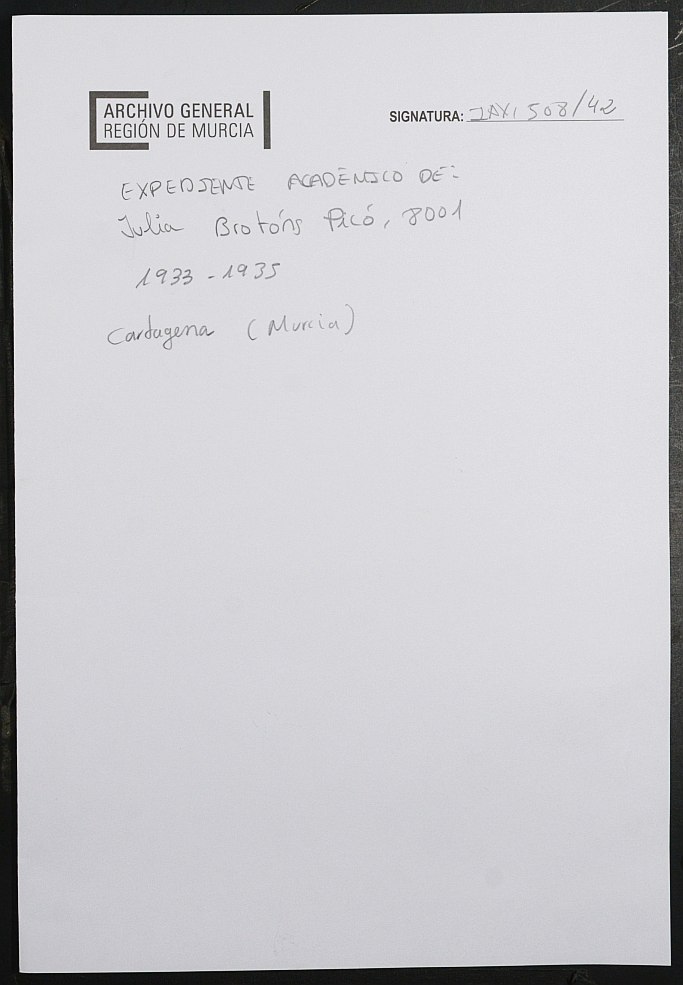 ARCHIVO GENERAL
REGIÓN DE MURCIA
SIGNATURA: IAXI 508/42
EXPEDIENTE ACADÉMICO DE:
Julia Brotóns Picó, 8001
1933 - 1935
Cartagena (Murcia)